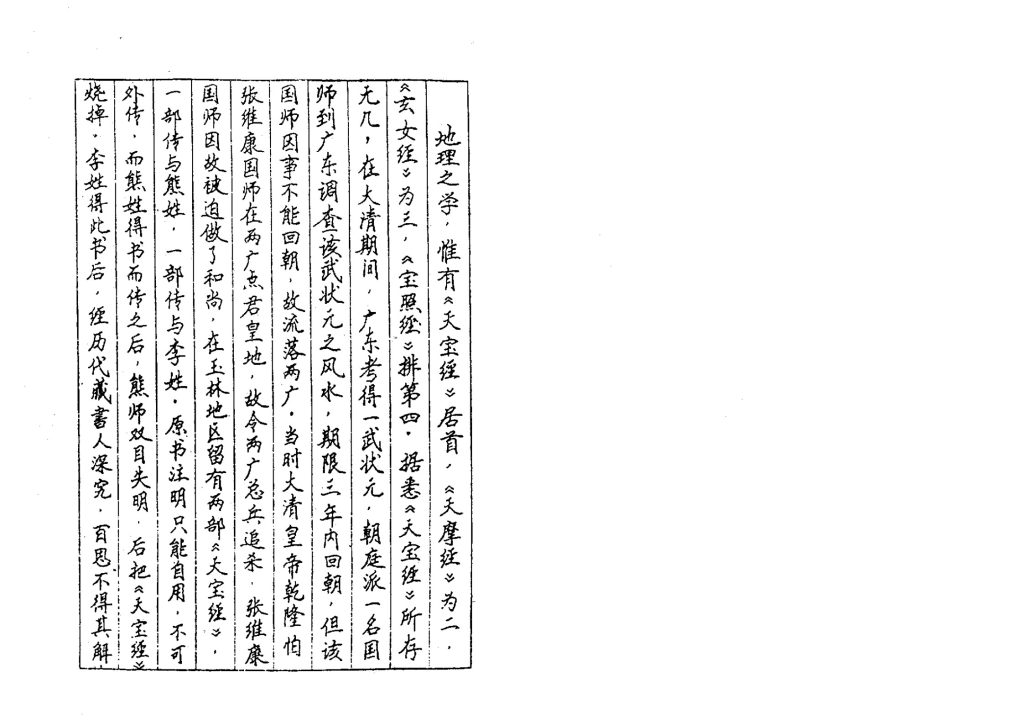 地理之学，惟有《天宝经》居首，《天摩经》为二，
《玄女经》为三，《宝照经》排第四。据悉《天宝经》所存
无几，在大清期间，广东考得一武状元，朝庭派一名国
师到广东调查该武状元之风水，期限三年内回朝，但该
国师因事不能回朝，故流落两广。当时大清皇帝乾隆怕
张维康国师在两广点君皇地，故令两广总兵追杀，张维康
国师因故被迫做了和尚，在玉林地区留有两部《天宝经》，
一部传与熊姓，一部传与李姓。原书注明只能自用，不可
外传，而熊姓得书而传之后，熊师双目失明，后把《天宝经》
烧掉。李姓得此书后，经历代藏書人深究，百思不得其解，